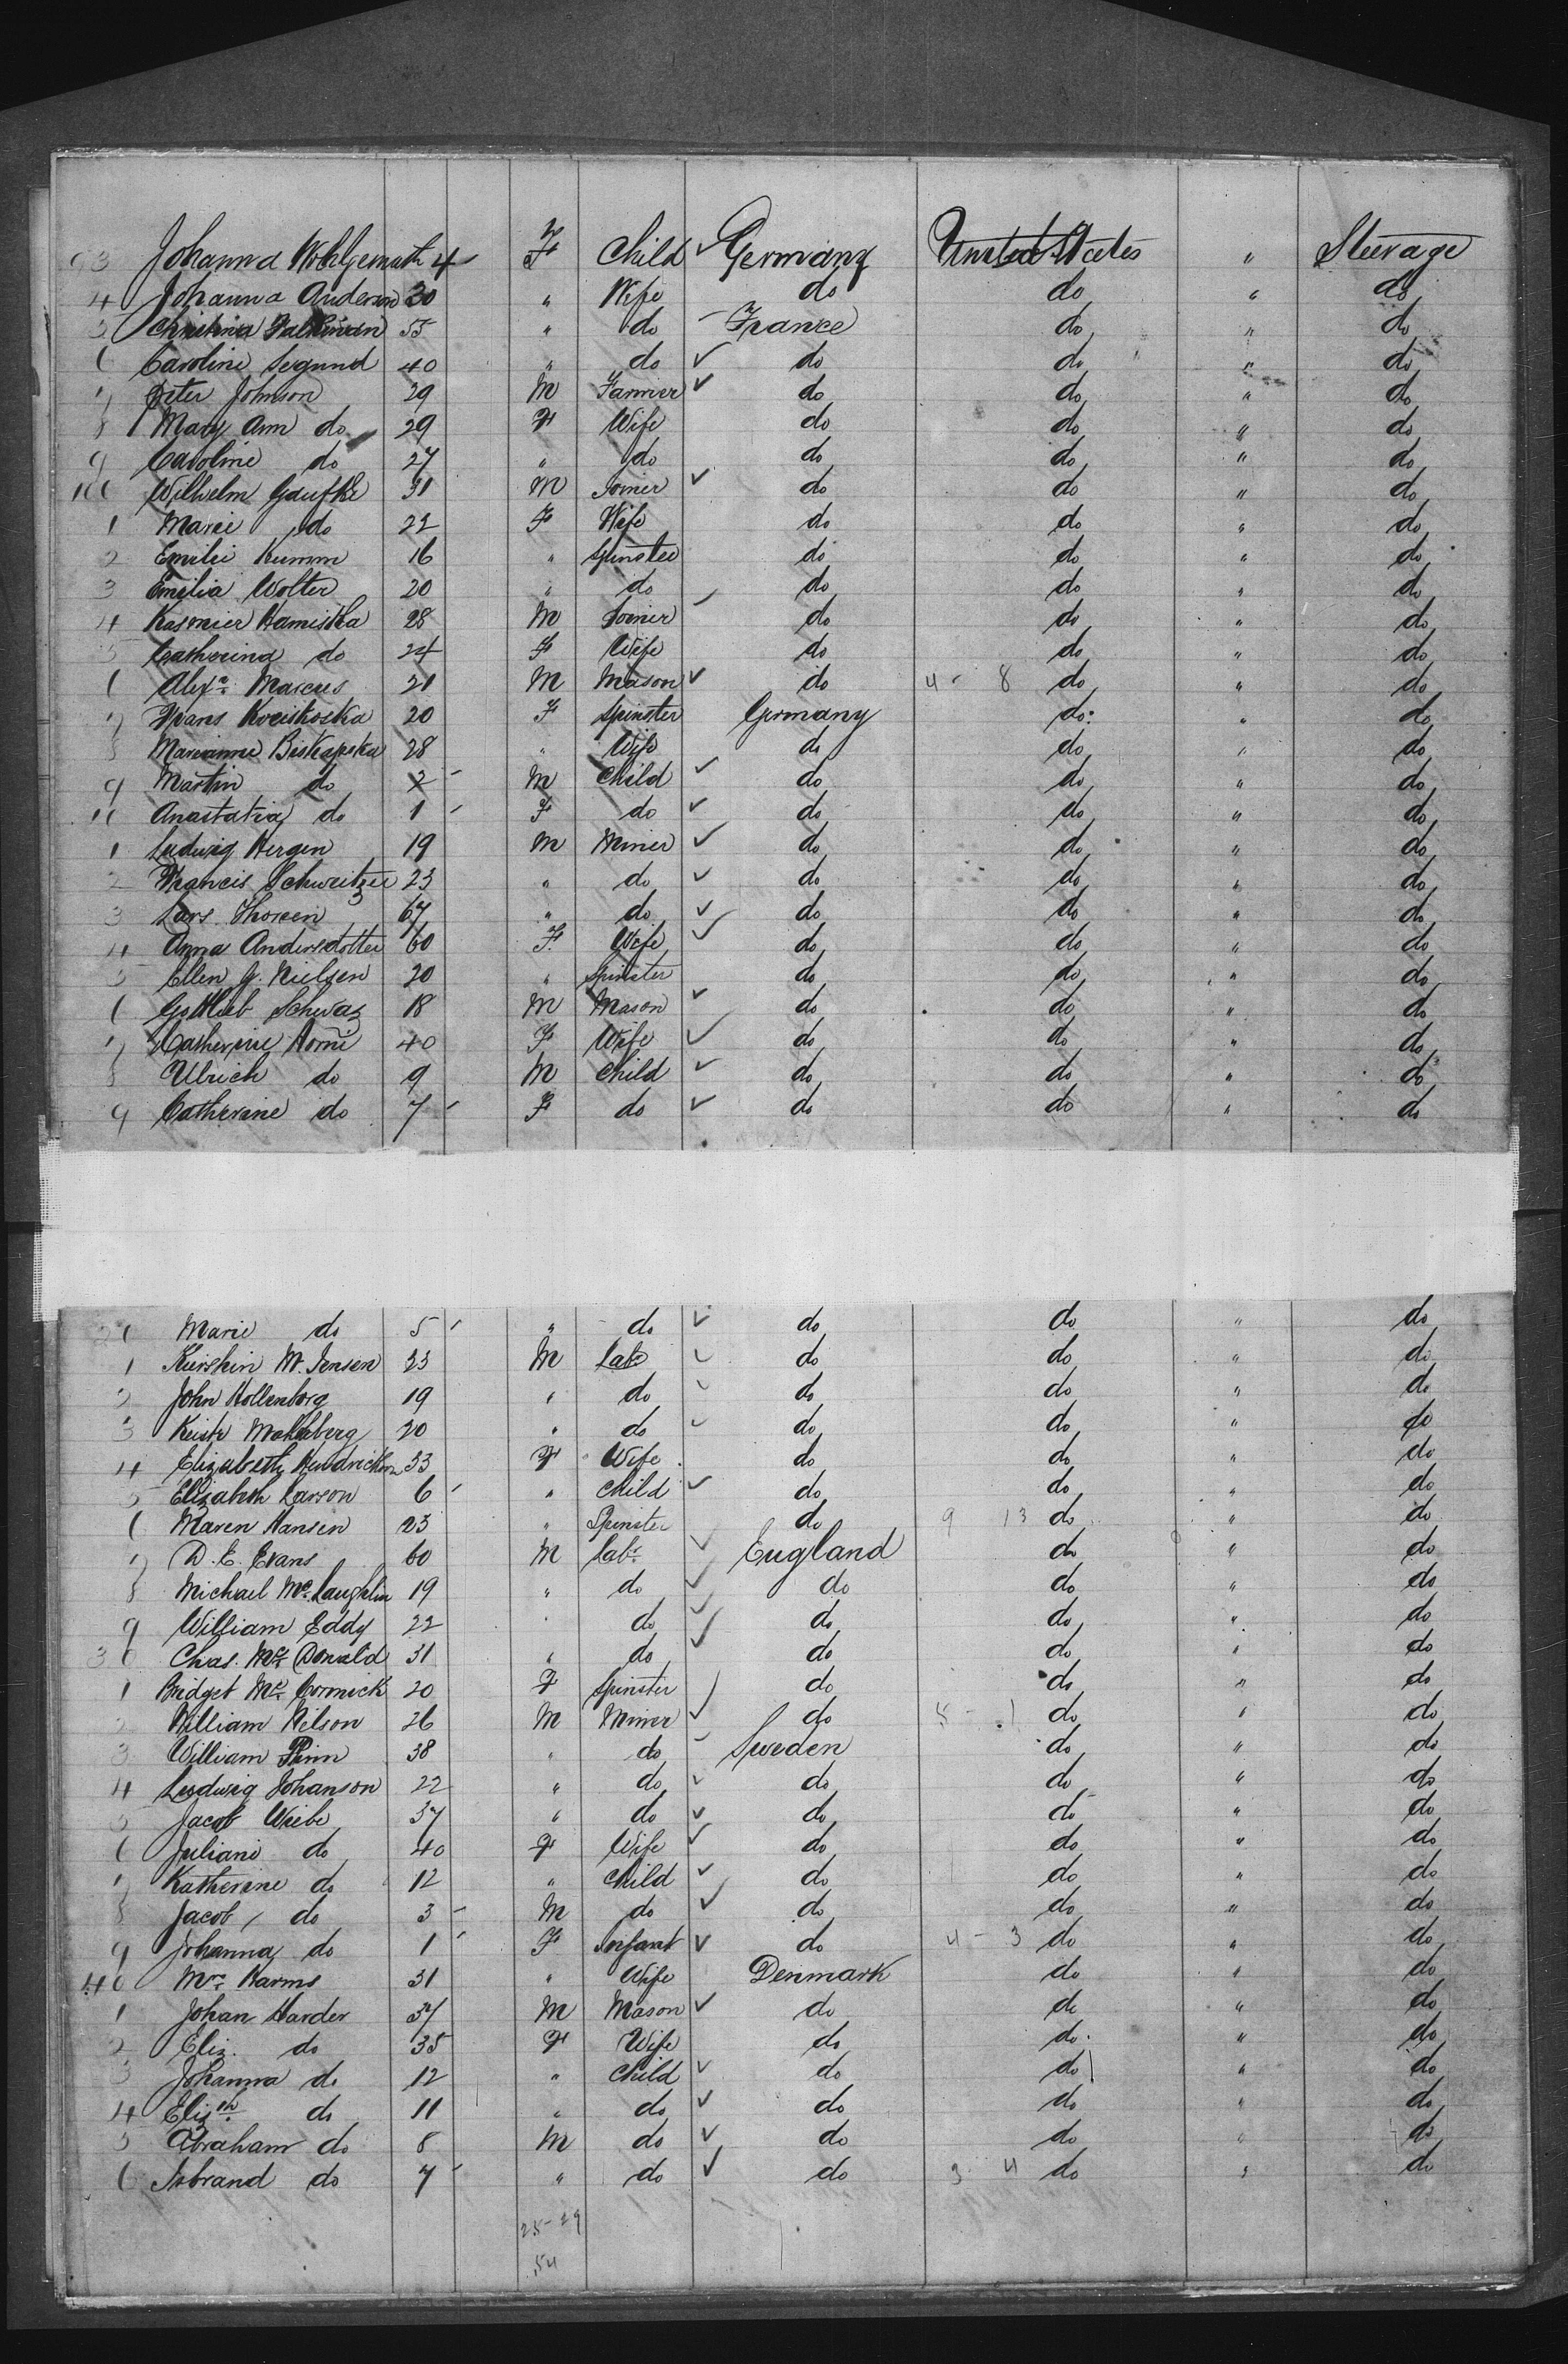 93 Johanna Wohlgemuth 4 F Child ✓ Germany United States " Steerage
4 Johanna Anderson 30 " Wife do do " do
5 Christina 55 " do France do " do
6 Caroline Segund 40 " do ✓ do do " do
7 Peter Johnson 29 M Farmer ✓ do do " do
8 Mary Ann do 29 F Wife do do " do
9 Caroline do 27 " do do do " do
100 Wilhelm 31 M Joiner ✓ do do " do
1 Marie do 22 F Wife do do " do
2 Emilie Kumm 16 " Spinster do do " do
3 Emilia Wolter 20 " do do do " do
4 Kasmier Hamiska 28 M Joiner do do " do
5 Catherina do 24 F Wife do do " do
6 Alexr Marcus 21 M Mason ✓ do 4 - 8 do " do
7 Frans 20 F Spinster Germany do " do
8 Marianne Biskapska 28 " Wife do do " do
9 Martin do 2 M Child ✓ do do " do
10 Anastatia do 1 F do ✓ do do " do
1 Ludwig Hergen 19 M Miner ✓ do do " do
2 Francis Schweitzer 23 " do ✓ do do " do
3 Lars 67 " do ✓ do do " do
4 Anna Andersdotter 60 F Wife ✓ do do " do
5 Ellen G. Nielsen 20 " Spinster do do " do
6 Gottlieb Schwaz 18 M Mason ✓ do do " do
7 Catherine 40 F Wife ✓ do do " do
8 Ulrich do 9 M Child ✓ do do " do
9 Catherine do 7 F do ✓ do do " do
20 Marie do 5 " do ✓ do do " do
1 M. Jensen 23 M Labr do do " do
2 John Hollenborg 19 " do do do " do
3 20 " do do do " do
4 Elizabeth Hendrickson 33 F Wife do do " do
5 Elizabeth Larson 6 " Child ✓ do do " do
6 Maren Hansen 23 " Spinster do 9 13 do " do
7 D. E. Evans 60 M Labr ✓ England do " do
8 Michael McLaughlin 19 " do ✓ do do " do
9 William Eddy 22 " do ✓ do do " do
30 Chas. McDonald 31 " do ✓ do do " do
1 Bridget McCormick 20 F Spinster do do " do
2 William Nelson 26 M Miner ✓ do 5 - 1 do " do
3 William 38 " do Sweden do " do
4 Ludwig Johanson 22 " do ✓ do do " do
5 Jacob Wiebe 37 " do ✓ do do " do
6 Juliani do 40 F Wife ✓ do do " do
7 Katherine do 12 " Child ✓ do do " do
8 Jacob do 3 M do ✓ do do " do
9 Johanna do 1 F Infant ✓ do 4 - 3 do " do
40 Mrs Harms 31 " Wife Denmark do " do
1 Johan Harder 37 M Mason ✓ do do " do
2 Eliz. do 35 F Wife do do " do
3 Johanna do 12 " Child ✓ do do " do
4 Elizth do 11 " do ✓ do do " do
5 Abraham do 8 M do ✓ do do " do
6 Isbrand do 7 " do ✓ do 3 4 do " do
25 - 29
54